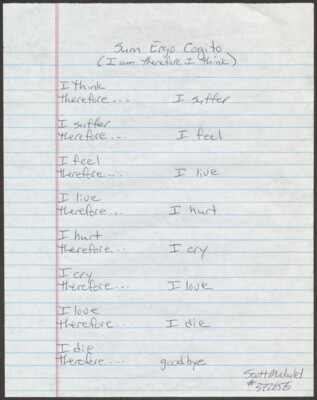 Sum Ergo Cogito
(I am therefore I think)
I think
therefore... I suffer
I suffer
therefore... I feel
I feel
therefore... I live
I live
therefore... I hurt
I hurt
therefore... I cry
I cry
therefore... I love
I love
therefore... I die
I die
therefore... goodbye
Scott